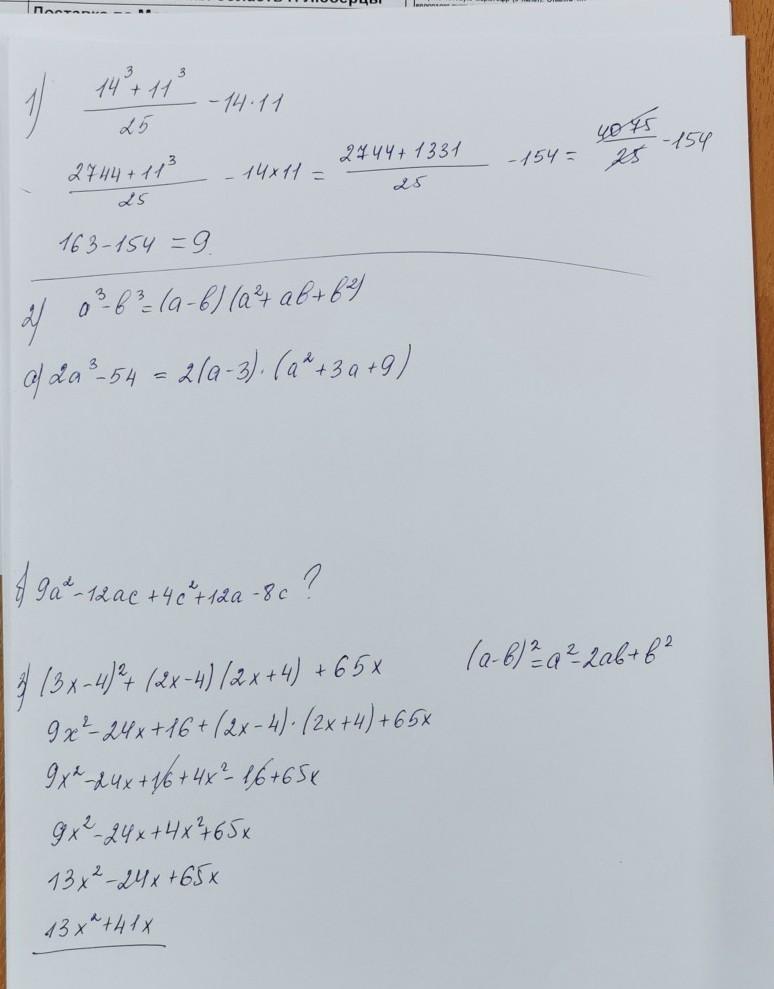 1) 14³ + 11³ / 25 - 14·11
2744 + 11³ / 25 - 14×11 = 2744 + 1331 / 25 - 154 = 4075 / 25 - 154
163 - 154 = 9
2) a³ - b³ = (a - b)(a² + ab + b²)
a) 2a³ - 54 = 2(a - 3)·(a² + 3a + 9)
б) 9a² - 12ac + 4c² + 12a - 8c ?
3) (3x - 4)² + (2x - 4)(2x + 4) + 65x
(a - b)² = a² - 2ab + b²
9x² - 24x + 16 + (2x - 4)·(2x + 4) + 65x
9x² - 24x + 16 + 4x² - 16 + 65x
9x² - 24x + 4x² + 65x
13x² - 24x + 65x
13x² + 41x